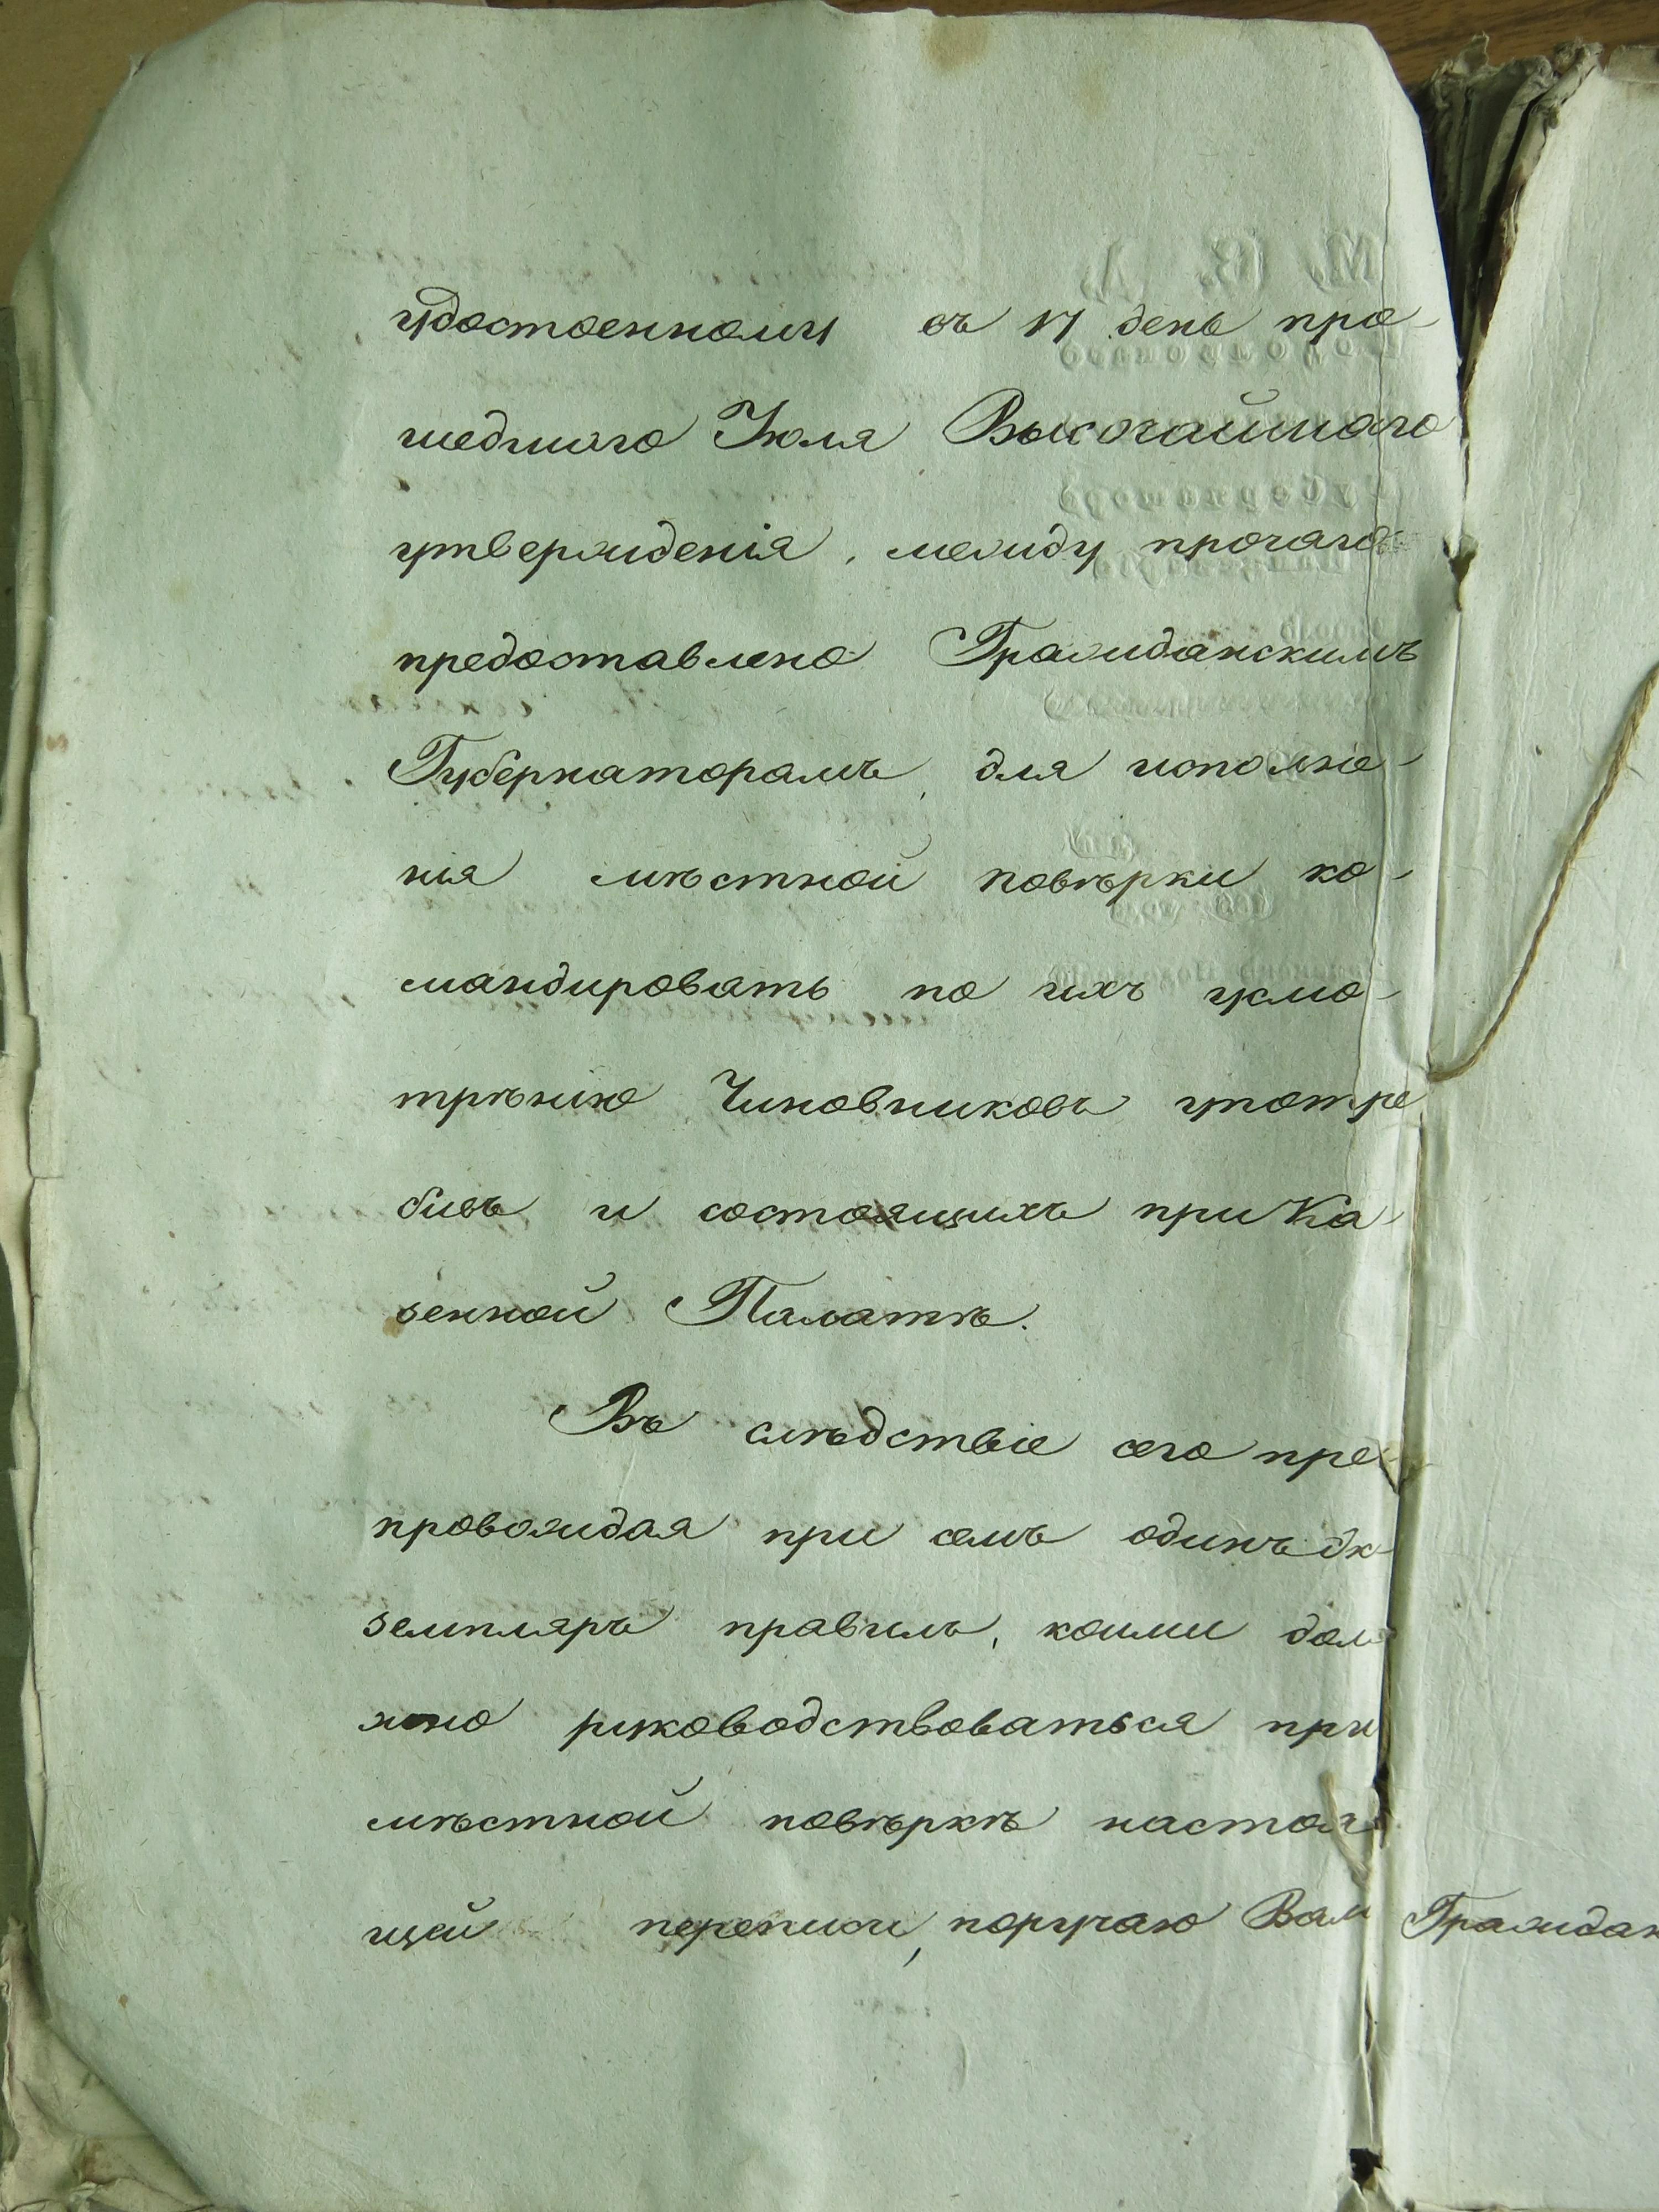 удостоенному въ 17 день про-
шедшаго Іюля Высочайшаго
утвержденія, между прочимъ
предоставлено Гражданскимъ
Губернаторамъ, для исполне-
нія мѣстной повѣрки ко-
мандировать по ихъ усмо-
трѣнію Чиновниковъ употре
бивъ и состоящихъ при Ка-
зенной Палатѣ.
Въ слѣдствіе сего пре-
провождая при семъ одинъ эк-
земпляръ правилъ, коими дол
жно руководствоваться при
мѣстной повѣркѣ настоя
щей переписи, поручаю Вам Граждан